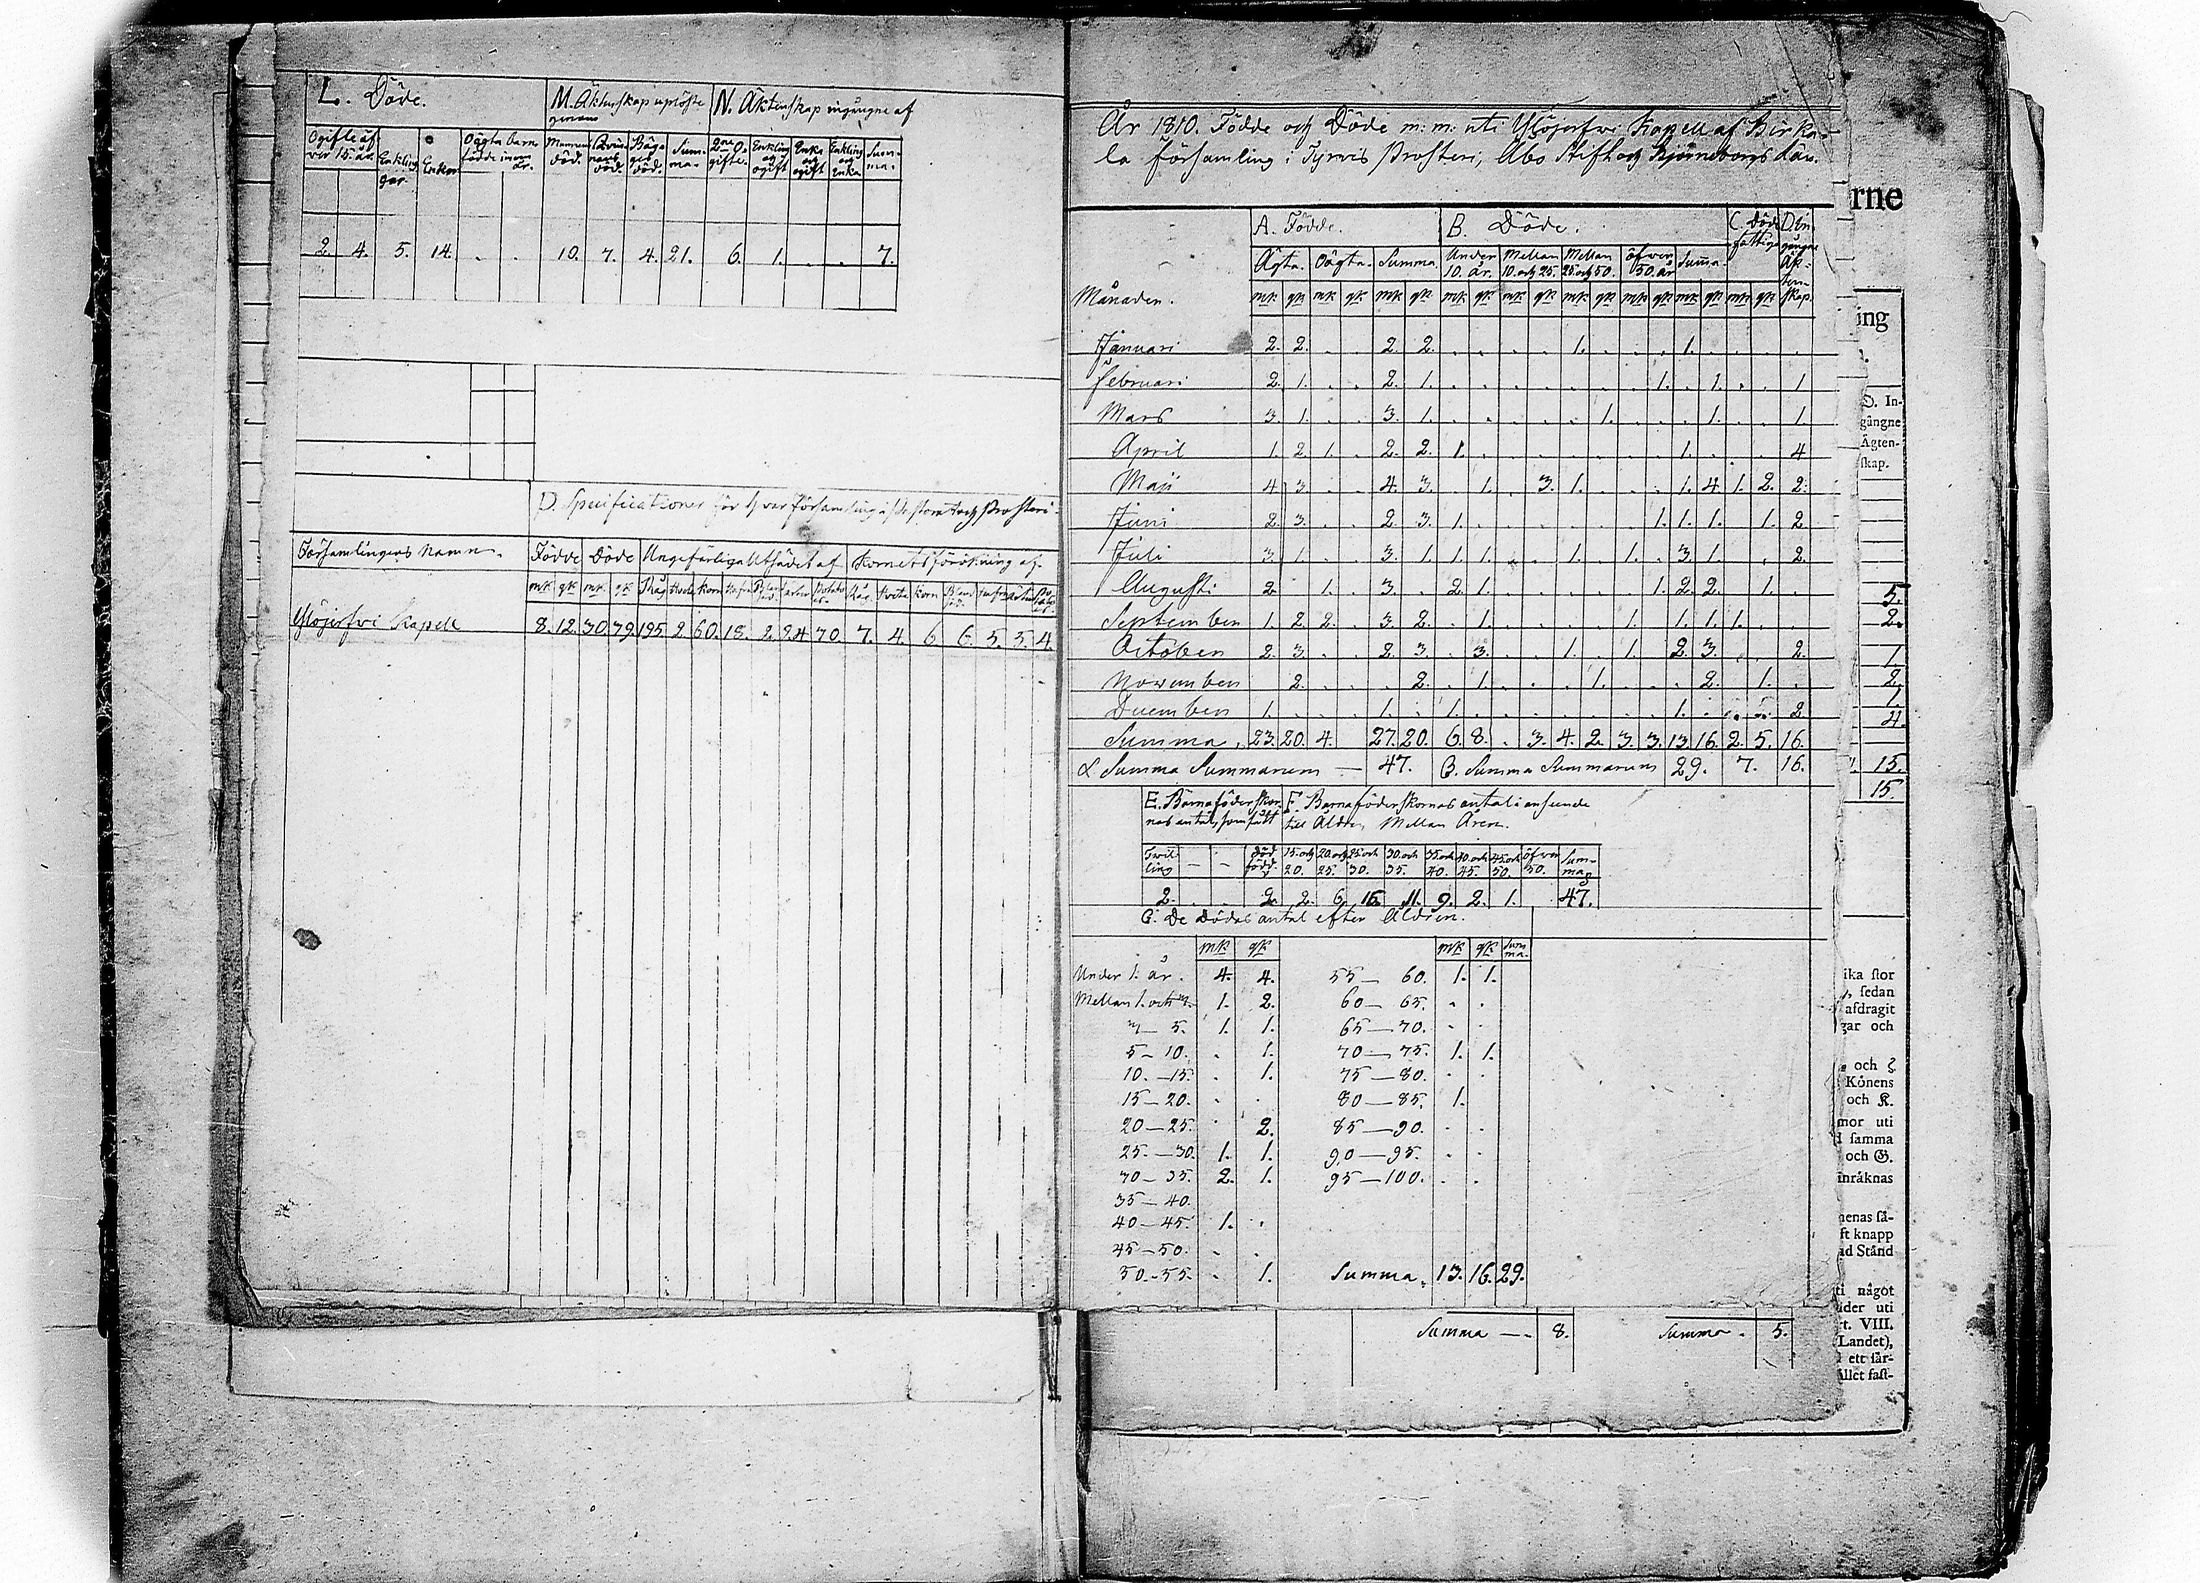 L. Döde.
M. Äktenskap uplöste genom
N. Äktenskap ingångne af
Ogifte öfver 15. år.
Enklingar.
Enkor
Oägta Barn födde inom år.
Mannens död.
Qvinnans död.
Bägges död.
Summa.
2ne Ogifte.
Enkling og ogift
Enka og ogift
Enkling og Enka
Summa.
2. 4. 5. 14. . . 10. 7. 4. 21. 6. 1. . . 7.
Församlingens Namn.
Födde Döde
mk. qk. mk. qk. Råg Korn
Råg. Hvete Korn
Ylöjerfvi Kapell 8. 12. 30. 79. 195. 2. 60. 18. 2. 70. 7. 4. 6 6. 5. 5. 4.
År 1810. Födde och Döde m: m: uti Ylöjerfvi Kapell af Birka-
la församling i Tyrvis Prosteri, Åbo Stift och Björneborgs Län.
A. Födde. B. Döde. C. Döde fattige D. Ingångne Äktenskap.
Ägta. Oägta. Summa. Under 10. år. Mellan 10. och 25. Mellan 25. och 50. öfver 50. år Summa.
Månaden. mk qk mk qk mk qk mk qk mk qk mk qk mk qk mk qk mk qk
Januari 2. 2. . . 2. 2. . . . . 1. . . . 1. . . . .
Februari 2. 1. . . 2. 1. . . . . . . . 1. . 1. . . 1
Mars 3. 1. . . 3. 1. . . . . . 1. . . . 1. . . 1.
April 1. 2. 1. . 2. 2. 1. . . . . . . . 1. . . . 4
Maji 4. 3. . . 4. 3. . 1. . 3. 1. . . . 1. 4. 1. 2. 2.
Juni 2. 3. . . 2. 3. 1. . . . . . . 1. 1. 1. . 1. 2.
Juli 3. 1. . . 3. 1. 1. 1. . . 1. . 1. . 3. 1. . . 2.
Augusti 2. . 1. . 3. . 2. 1. . . . . . 1. 2. 2. . 1. .
September 1. 2. 2. . 3. 2. . 1. . . . . 1. . 1. 1. 1. . .
October 2. 3. . . 2. 3. . 3. . . 1. . 1. . 2. 3. . . 2.
November 2. . . . 2. . 1. . . . 1. . . . 2. . 1. .
December 1. . . . 1. . 1. . . . . . . . 1. . . . 2
Summa. 23. 20. 4. 27. 20. 6. 8. . 3. 4. 2. 3. 3. 13. 16. 2. 5. 16.
Summa Summarum — 47. B. Summa Summarum 29. 7. 16.
E. Barnaföderskornas antal, som fått
F. Barnaföderskornas antal i anseende
till Åldren, Mellan Åren.
Tvilling — — Död född. 15. och 20. 20. och 25. 25. och 30. 30. och 35. 35. och 40. 40. och 45. 45. och 50. öfver 50. Summa
2. . . 2. 2. 6. 16. 11. 9. 2. 1. 47.
G. De Dödas antal efter Åldren.
mk qk mk qk Summa.
Under 1. år. 4. 4. 55— 60. 1. 1.
Mellan 1. och 3. 1. 2. 60— 65. . .
3— 5. 1. 1. 65—70. . .
5—10. . 1. 70—75. 1. 1.
10.—15. . 1. 75—80. . .
15—20. . . 80—85. 1.
20—25. . 2. 85—90. . .
25.—30. 1. 1. 90—95. . .
30—35. 2. 1. 95—100. . .
35—40.
40—45. 1. .
45—50. . .
50—55. . 1. Summa. 13. 16. 29.
Summa — 8. Summa. 5.
rne
ing
D. In-
gångne
Ägten-
skap.
5.
2.
1.
2.
1.
4.
15.
15.
ika stor
, sedan
afdragit
gar och
och
Könens
och K.
mor uti
samma
och G.
inräknas
nenas så-
ft knapp
ad Stånd
ti något
ider uti
t. VIII.
Landet),
ett sär-
ållet fast-